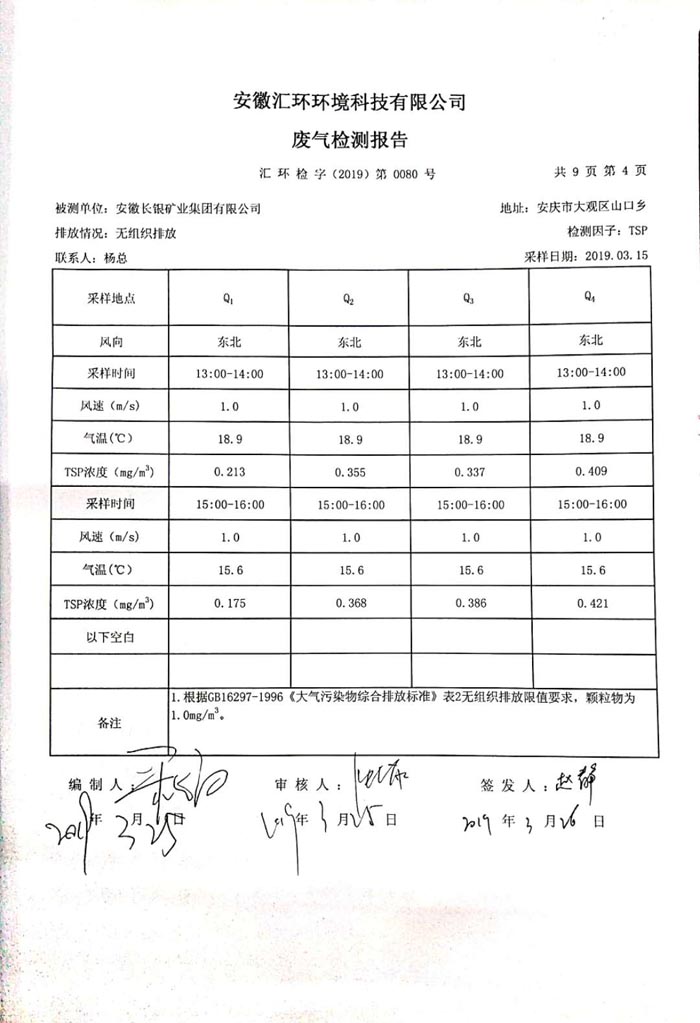 安徽汇环环境科技有限公司
废气检测报告
汇 环 检 字（2019）第 0080 号 共 9 页 第 4 页
被测单位：安徽长银矿业集团有限公司 地址：安庆市大观区山口乡
排放情况：无组织排放 检测因子：TSP
联系人：杨总 采样日期：2019.03.15
采样地点 Q1 Q2 Q3 Q4
风向 东北 东北 东北 东北
采样时间 13:00-14:00 13:00-14:00 13:00-14:00 13:00-14:00
风速（m/s） 1.0 1.0 1.0 1.0
气温(℃） 18.9 18.9 18.9 18.9
TSP浓度（mg/m³） 0.213 0.355 0.337 0.409
采样时间 15:00-16:00 15:00-16:00 15:00-16:00 15:00-16:00
风速（m/s） 1.0 1.0 1.0 1.0
气温(℃） 15.6 15.6 15.6 15.6
TSP浓度（mg/m³） 0.175 0.368 0.386 0.421
以下空白
备注 1.根据GB16297-1996《大气污染物综合排放标准》表2无组织排放限值要求，颗粒物为
1.0mg/m³。
编 制 人： 审 核 人： 签 发 人：赵静
2019 年 3 月 25 日 2019 年 3 月 25 日 2019 年 3 月 26 日